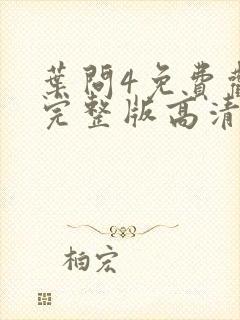 葉問4免費
完整版高清
柏宏